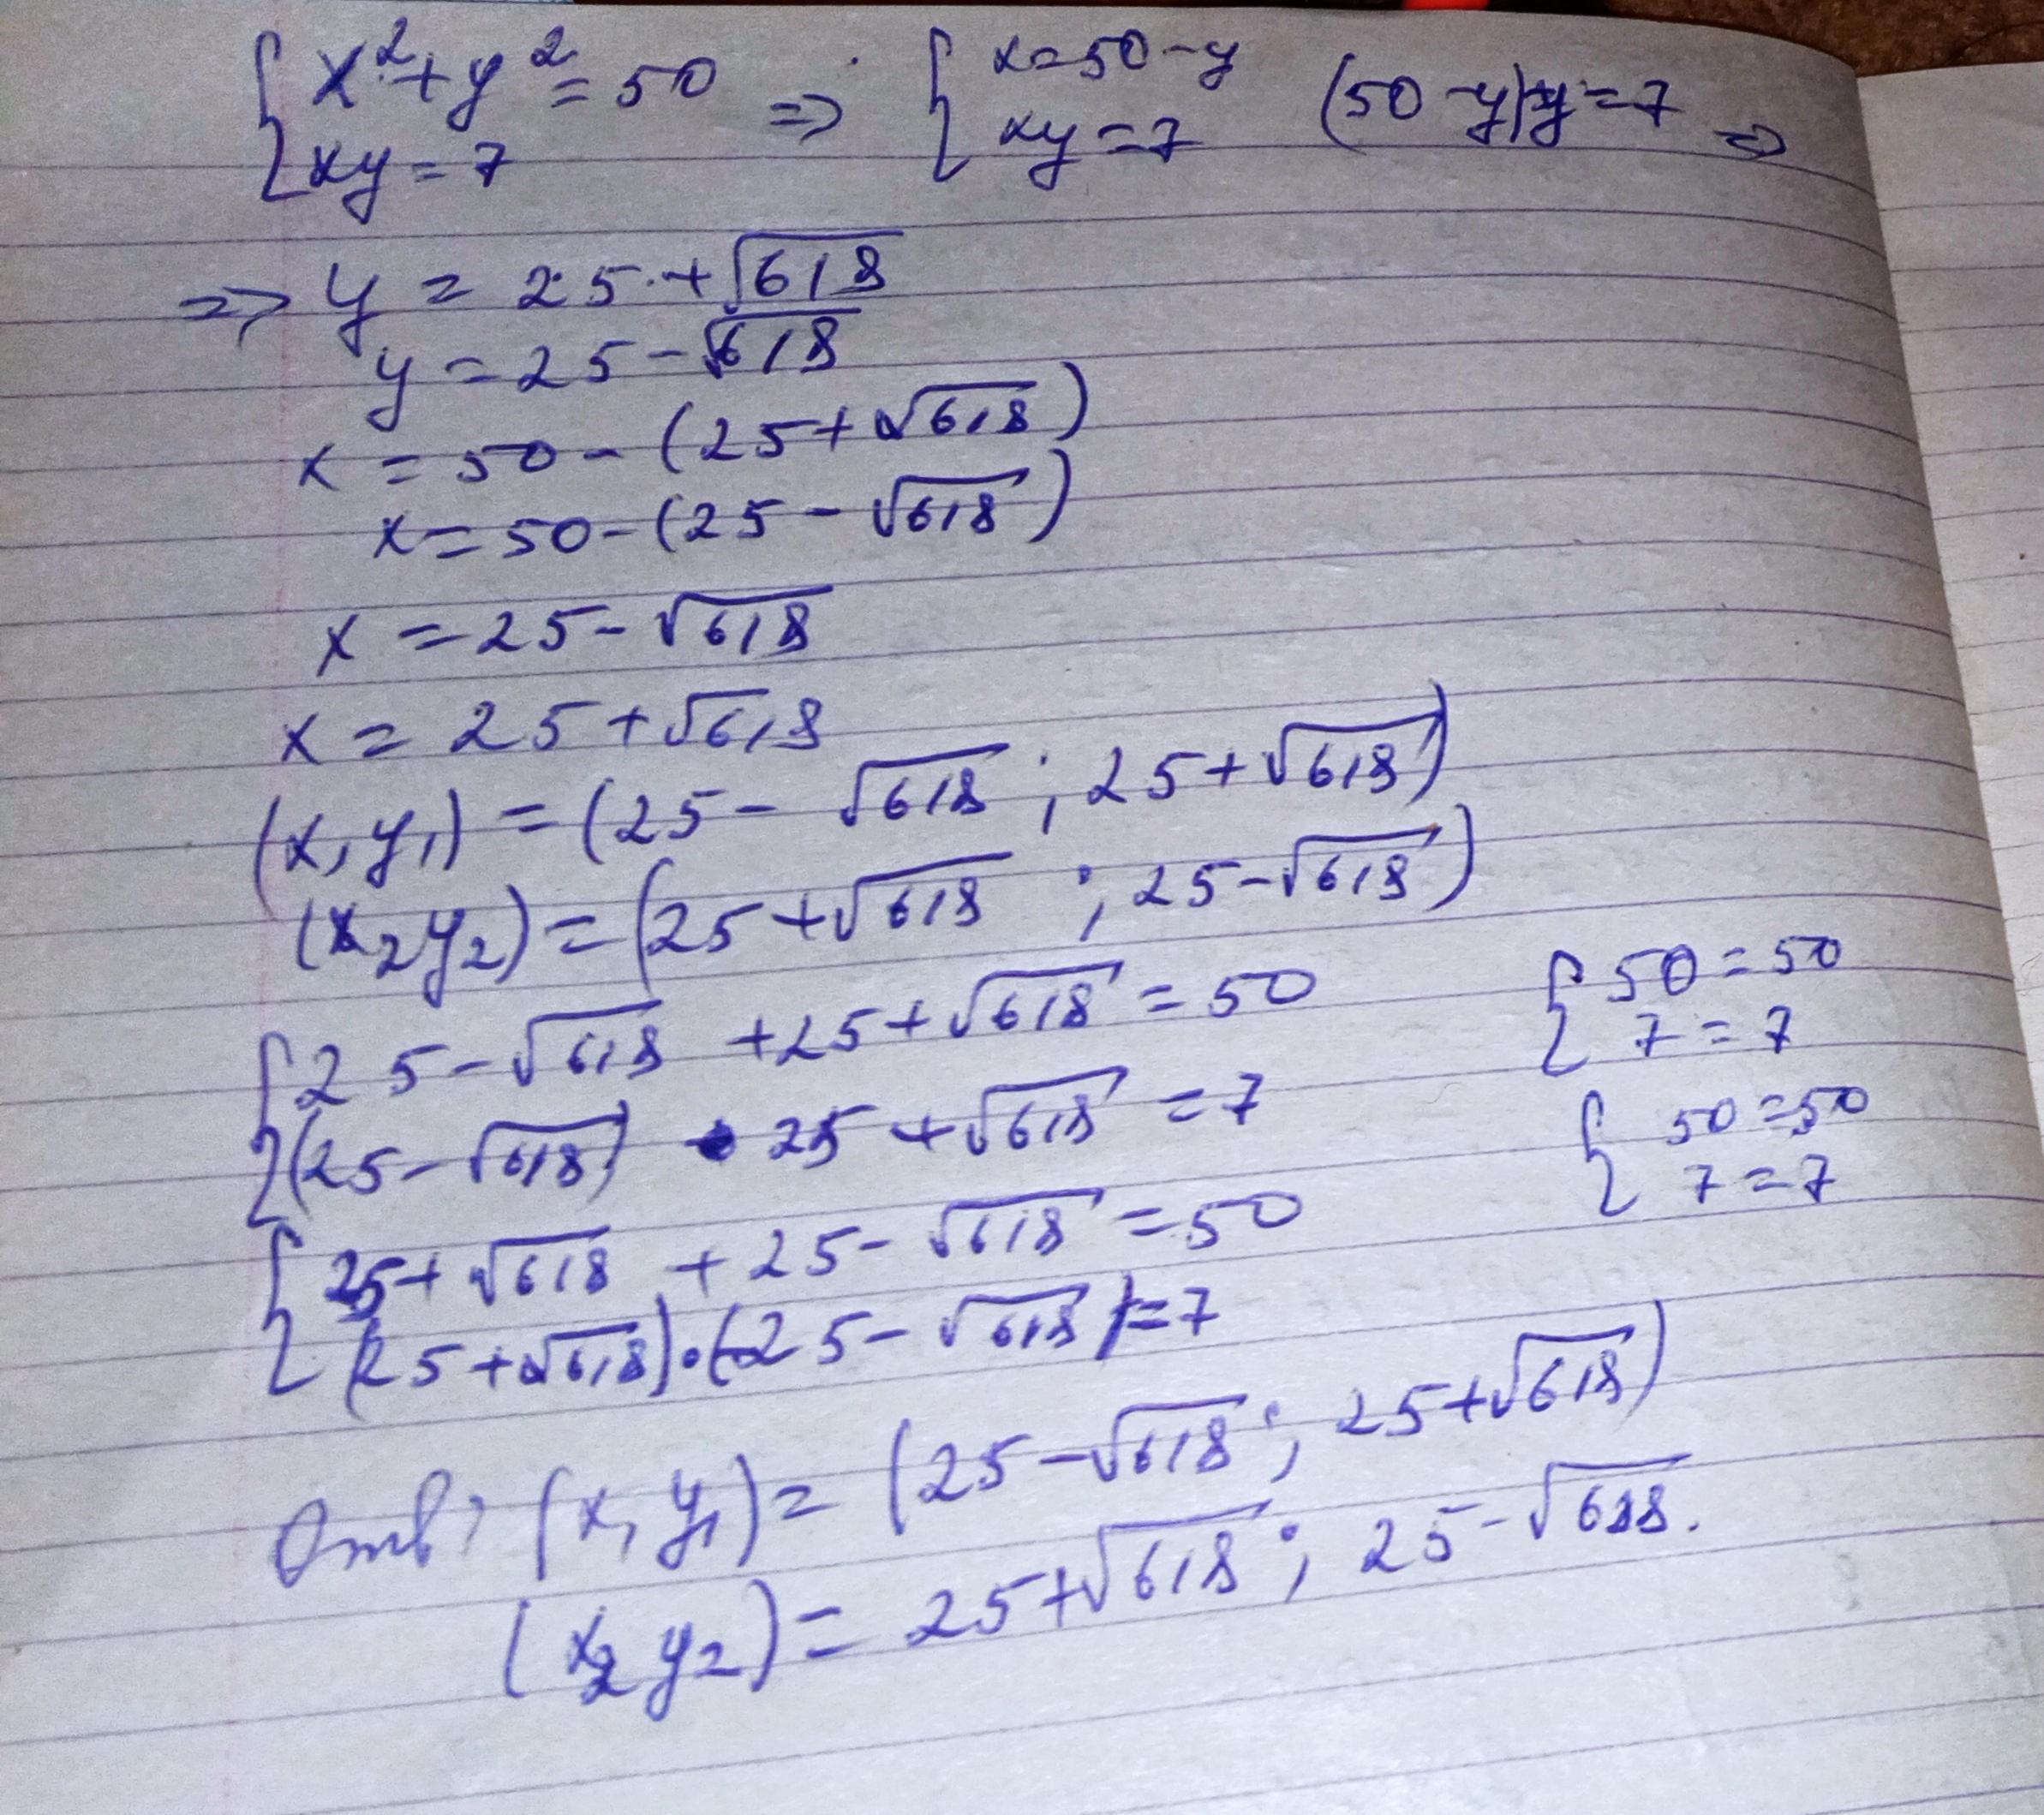 { x² + y² = 50 => { x = 50 - y (50 - y)y = 7 =>
{ xy = 7 { xy = 7
=> y = 25 + √618
y = 25 - √618
x = 50 - (25 + √618)
x = 50 - (25 - √618)
x = 25 - √618
x = 25 + √618
(x, y₁) = (25 - √618 ; 25 + √618)
(x₂ y₂) = (25 + √618 ; 25 - √618)
{ 25 - √618 + 25 + √618 = 50 { 50 = 50
{ (25 - √618) • 25 + √618 = 7 { 7 = 7
{ 25 + √618 + 25 - √618 = 50 { 50 = 50
{ (25 + √618) · (25 - √618) = 7 { 7 = 7
Отв: (x, y₁) = (25 - √618 ; 25 + √618)
(x₂ y₂) = 25 + √618 ; 25 - √618.